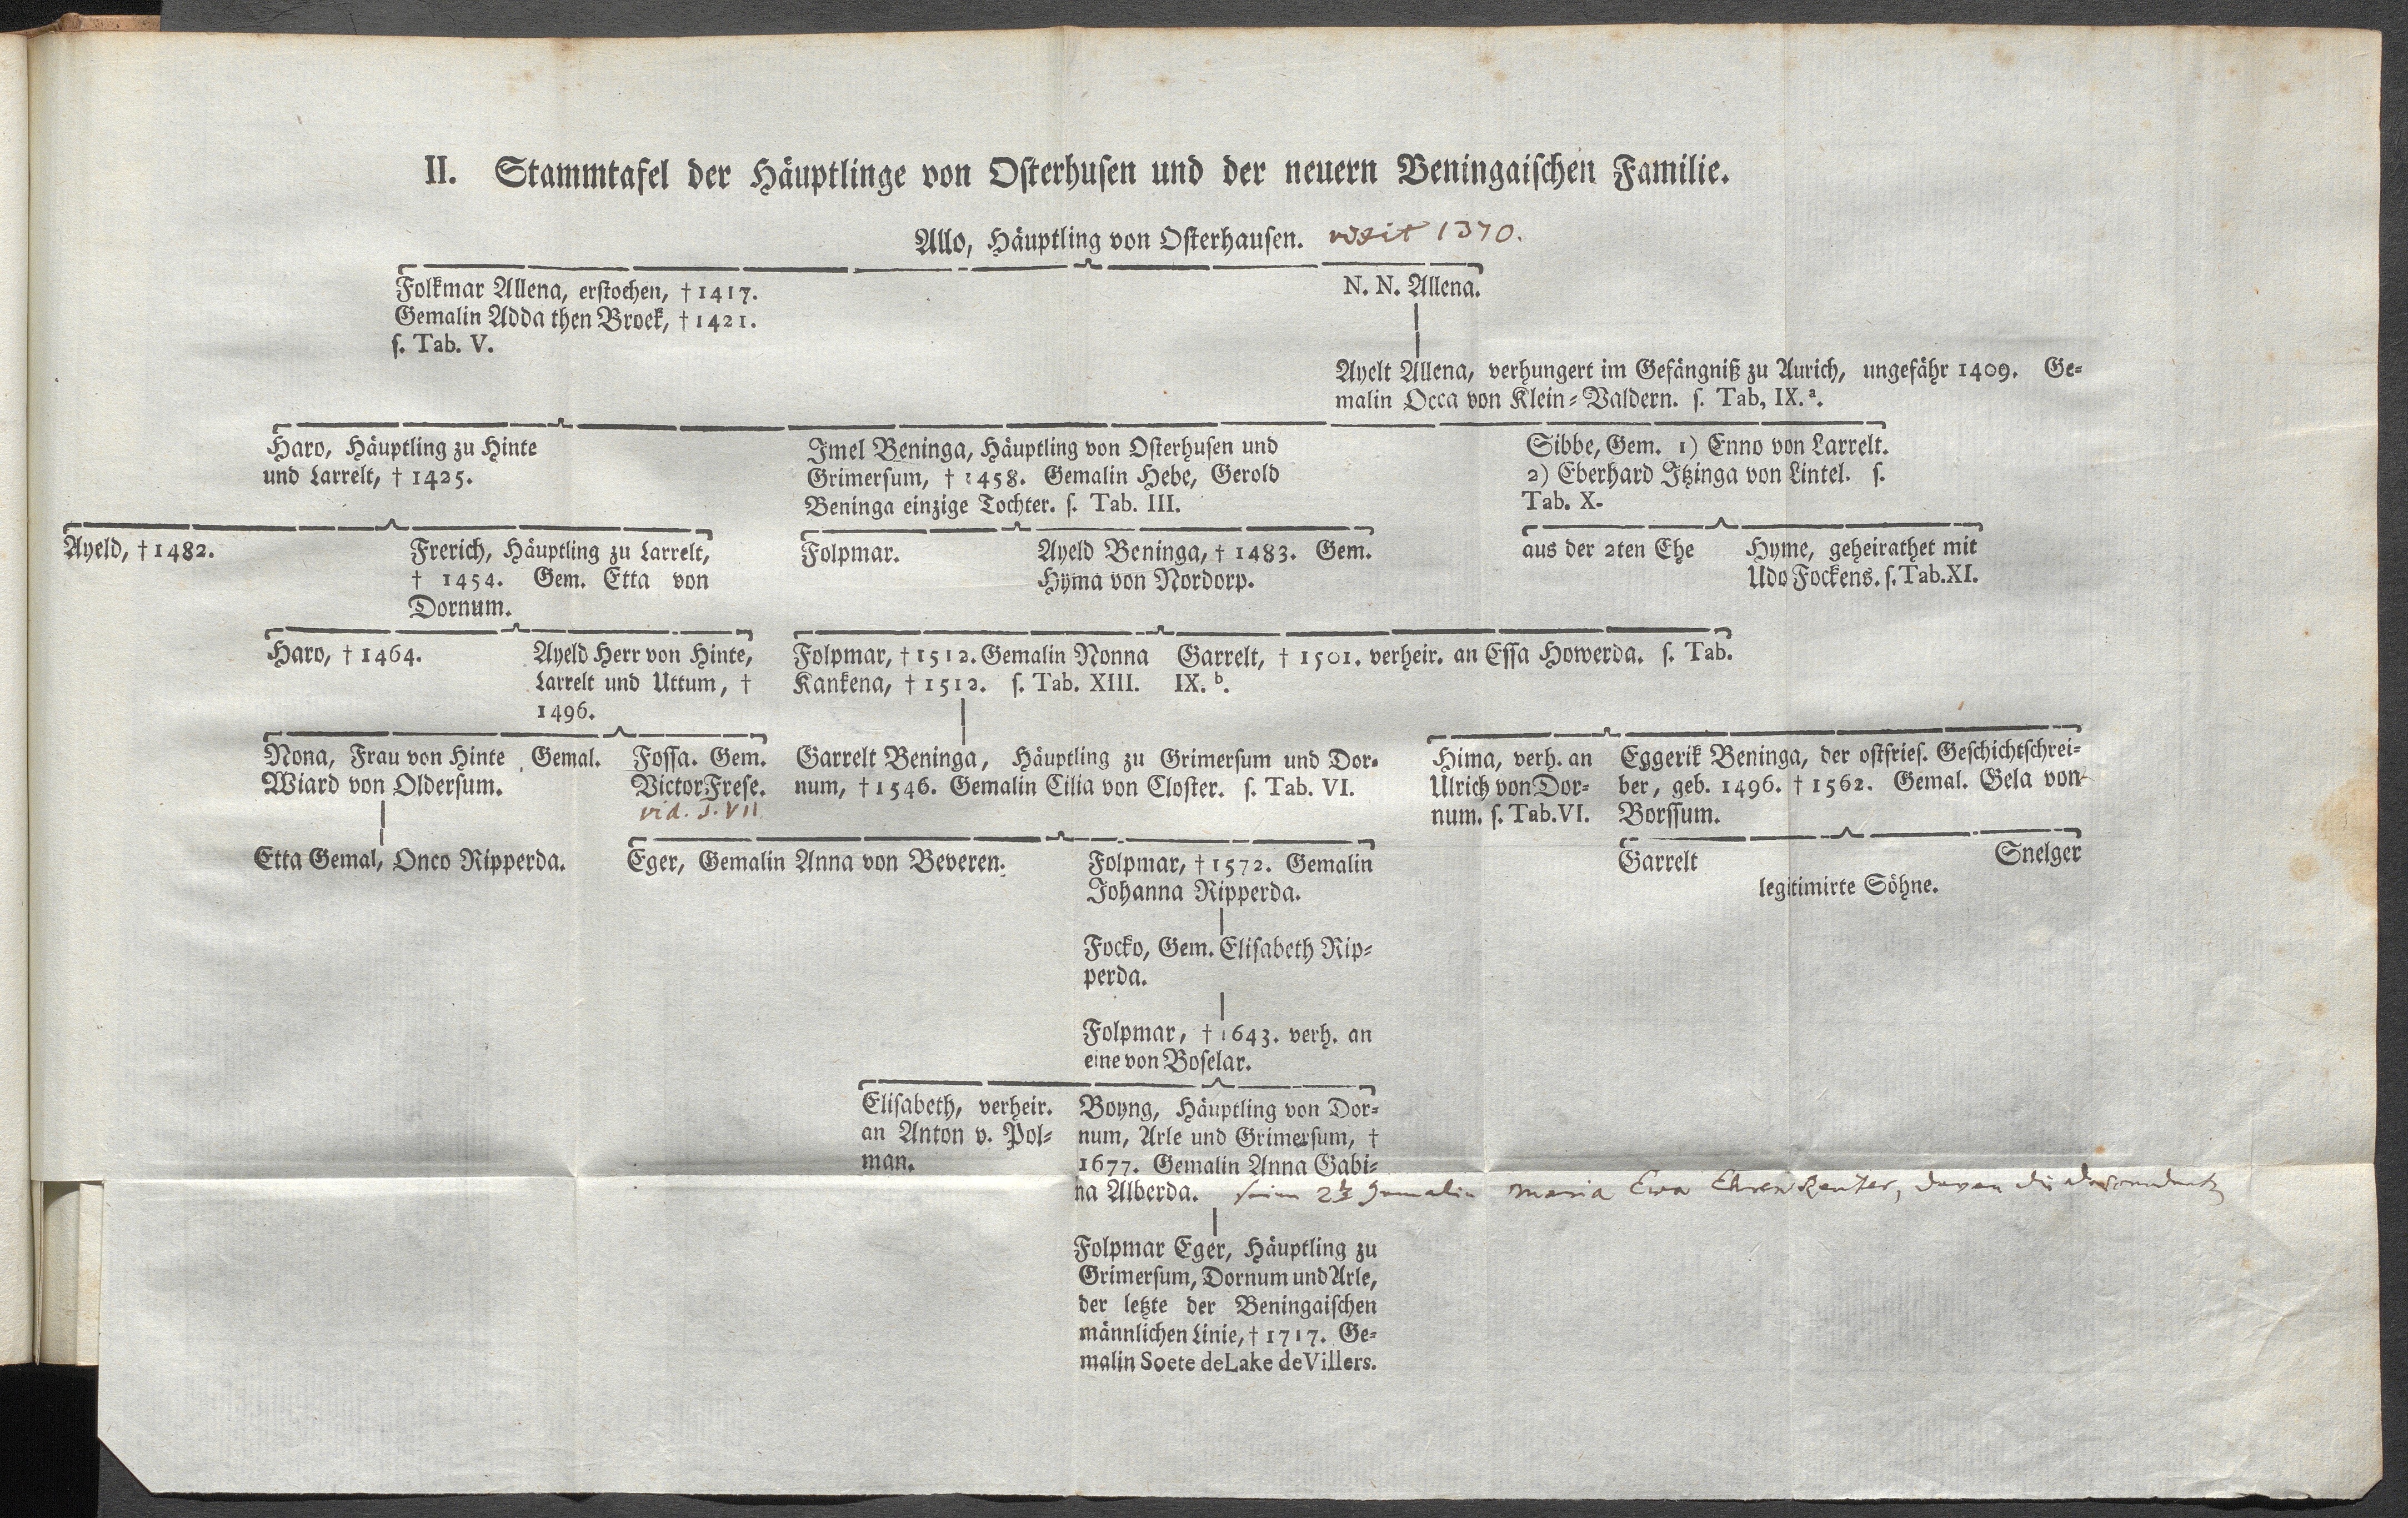 II. Stammtafel der Häuptlinge von Osterhusen und der neuern Beningaischen Familie.
Allo, Häuptling von Osterhausen. vixit 1370.
Folkmar Allena, erstochen, † 1417.
Gemalin Adda then Broek, † 1421.
s. Tab. V.
N. N. Allena.
Ayelt Allena, verhungert im Gefängniß zu Aurich, ungefähr 1409. Ge-
malin Occa von Klein-Valdern. s. Tab, IX. a.
Haro, Häuptling zu Hinte
und Larrelt, † 1425.
Imel Beninga, Häuptling von Osterhusen und
Grimersum, † 1458. Gemalin Hebe, Gerold
Beninga einzige Tochter. s. Tab. III.
Sibbe, Gem. 1) Enno von Larrelt.
2) Eberhard Itzinga von Lintel. s.
Tab. X.
Ayeld, † 1482.
Frerich, Häuptling zu Larrelt,
† 1454. Gem. Etta von
Dornum.
Folpmar.
Ayeld Beninga, † 1483. Gem.
Hyma von Nordorp.
aus der 2ten Ehe
Hyme, geheirathet mit
Udo Fockens. s. Tab. XI.
Haro, † 1464.
Ayeld Herr von Hinte,
Larrelt und Uttum, †
1496.
Folpmar, † 1512. Gemalin Nonna
Kankena, † 1512. s. Tab. XIII.
Garrelt, † 1501. verheir. an Essa Howerda. s. Tab.
IX. b.
Nona, Frau von Hinte Gemal.
Wiard von Oldersum.
Fossa. Gem.
Victor Frese.
vid. T. VII
Garrelt Beninga, Häuptling zu Grimersum und Dor-
num, † 1546. Gemalin Cilia von Closter. s. Tab. VI.
Hima, verh. an
Ulrich von Dor-
num. s. Tab. VI.
Eggerik Beninga, der ostfries. Geschichtschrei-
ber, geb. 1496. † 1562. Gemal. Gela von
Borssum.
Etta Gemal, Onco Ripperda.
Eger, Gemalin Anna von Beveren.
Folpmar, † 1572. Gemalin
Johanna Ripperda.
Garrelt Snelger
legitimirte Söhne.
Focko, Gem. Elisabeth Rip-
perda.
Folpmar, † 1643. verh. an
eine von Boselar.
Elisabeth, verheir.
an Anton v. Pol-
man.
Boyng, Häuptling von Dor-
num, Arle und Grimersum, †
1677. Gemalin Anna Gabi-
na Alberda. seine 2te Gemalin Maria Ewa Ehrenreuter, davon die
Folpmar Eger, Häuptling zu
Grimersum, Dornum und Arle,
der letzte der Beningaischen
männlichen Linie, † 1717. Ge-
malin Soete de Lake de Villers.